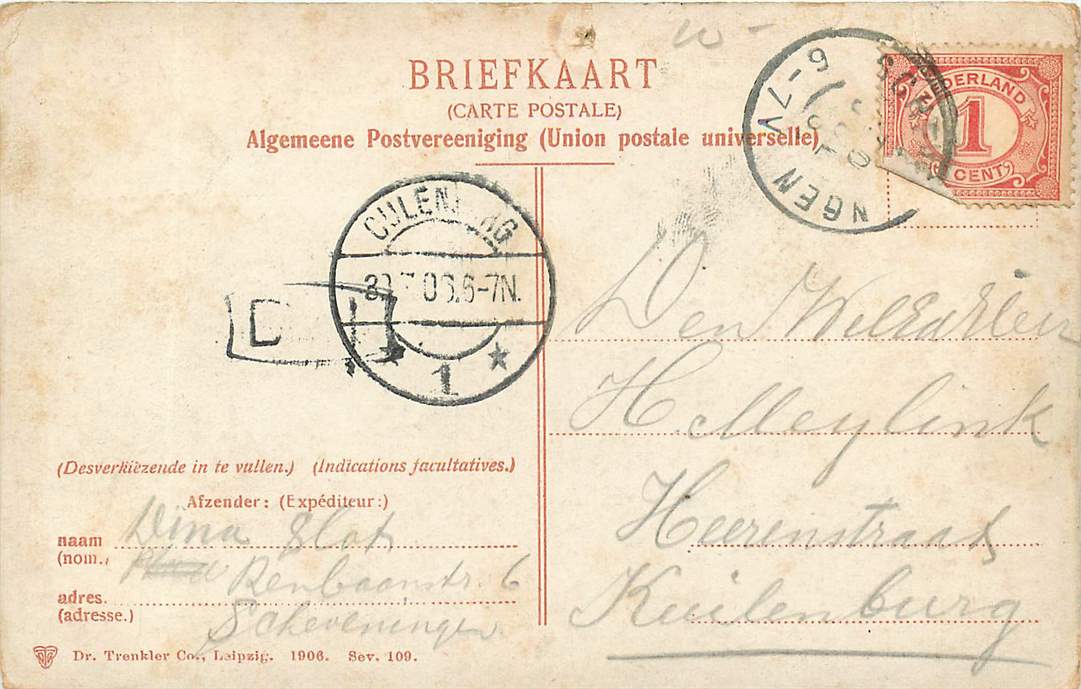 BRIEFKAART
(CARTE POSTALE)
Algemeene Postvereeniging (Union postale universelle)
NEDERLAND
1
CENT
6-7V
NGEN
CULEN RG
7 06.6-7N.
1
D
Den WelEd Heer
H. Meylink
Heerenstraat
Kuilenburg
(Desverkiezende in te vullen.) (Indications facultatives.)
Afzender: (Expéditeur:)
naam Dina Slot
(nom.)
Renbaanstr. 6
adres.
(adresse.) Scheveningen
Dr. Trenkler Co., Leipzig. 1906. Sev. 109.